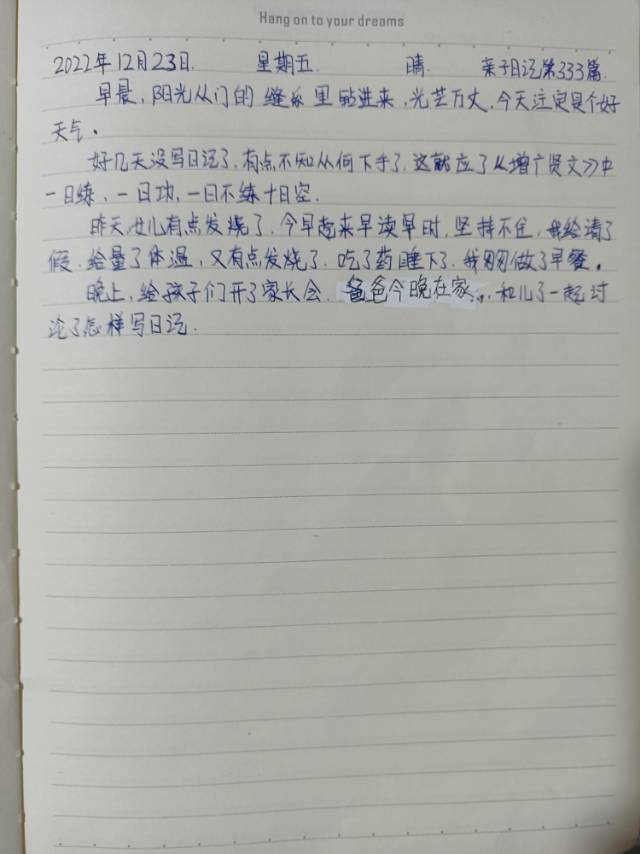 Hang on to your dreams
2022年12月23日. 星期五. 晴. 亲子日记第333篇.
早晨,阳光从门的缝 里钻进来,光芒万丈,今天注定是个好
天气。
好几天没写日记了,有点不知从何下手了,这就应了《增广贤文》中
一日练,一日功,一日不练十日空.
昨天女儿有点发烧了,今早起来早读早时,坚持不住,我给请了
假,给量了体温,又有点发烧了,吃了药睡下了,我刚刚做了早餐。
晚上,给孩子们开了家长会.爸爸今晚在家.,和儿子一起讨
论了怎样写日记.